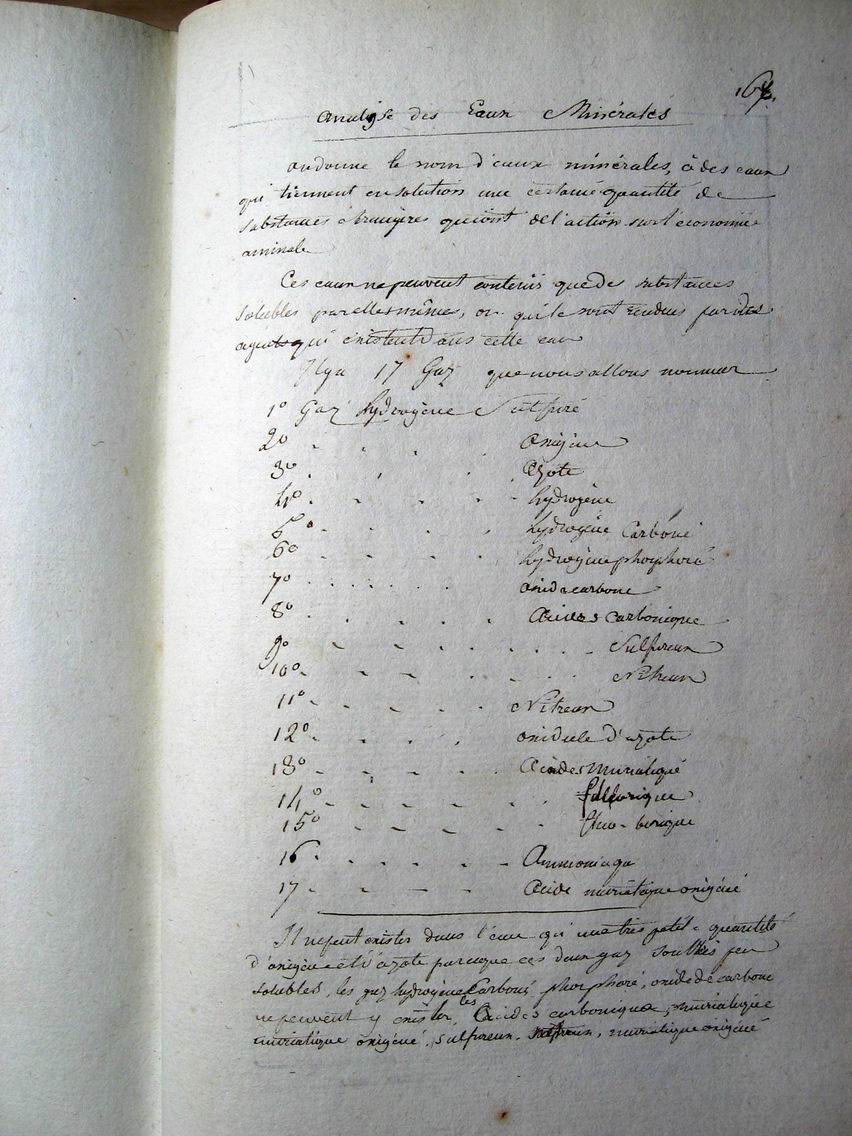 167.
Analyse des Eaux Minérales
on donne le nom d'eaux minérales, à des eaux
qui tiennent en solution une certaine quantité de
substances étrangères qui ont de l'action sur l'économie
animale
Ces eaux ne peuvent contenir que de substances
solubles par elles mêmes, ou qui le sont rendus par des
agents qui existent dans cette eau
Il y a 17 Gaz que nous allons nommer
1° Gaz hydrogène Sulfuré
2° oxigène
3° Azote
4° hydrogène
5° hydrogène Carboné
6° hydrogène phosphoré
7° oxide carbone
8° Acides carbonique
9° Sulfureux
10° Nitreux
11° Nitreux
12° oxidule d'azote
13° Acides muriatique
14° fluorique
15° fluo-borique
16 Ammoniaque
17 Acide muriatique oxigéné
Il ne peut exister dans l'eau qu'une très petite quantité
d'oxigène et d'azote parceque ces deux gaz sont très peu
solubles, les gaz hydrogène Carboné, phosphoré, oxide de carbone
ne peuvent y exister, les Acides carbonique, muriatique
muriatique oxigéné, sulfureux, muriatique oxigéné